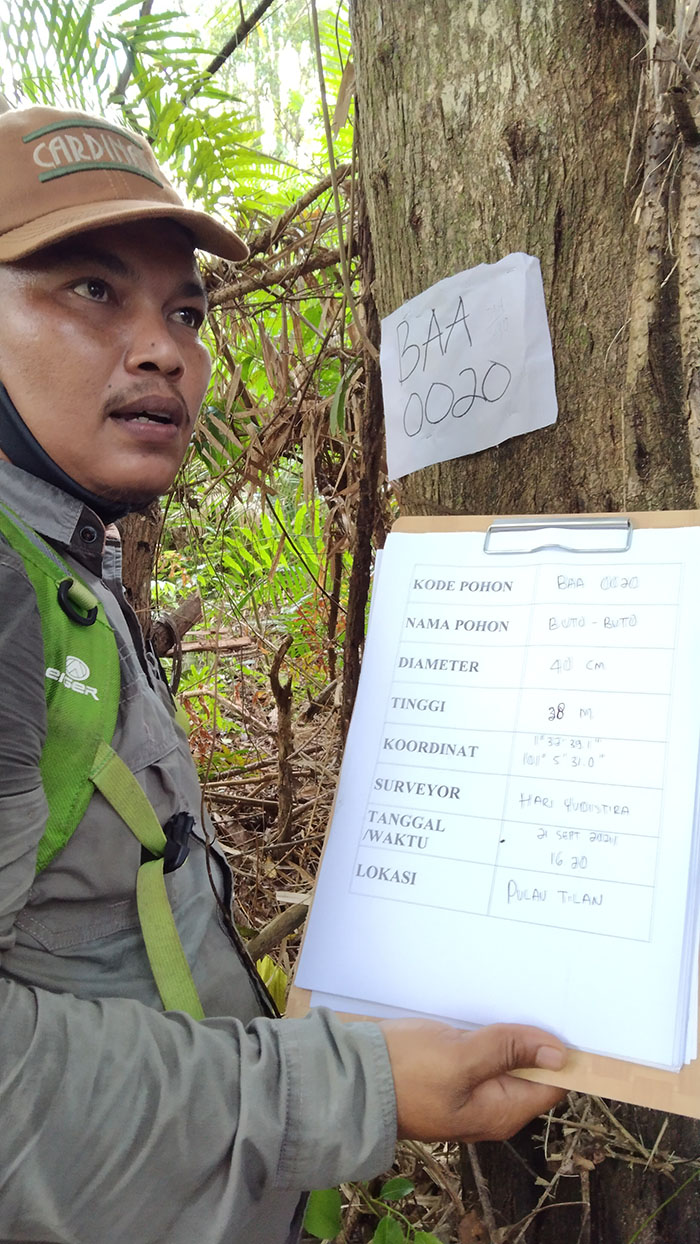 CARDINAL
BAA
0020
EIGER
KODE POHON BAA 0020
NAMA POHON BUTO - BUTO
DIAMETER 40 CM
TINGGI 38 M
KOORDINAT 1° 37' 39.1"
101° 5' 31.0"
SURVEYOR HARI YUDISTIRA
TANGGAL 21 SEPT
/WAKTU 16 20
LOKASI PULAU TILAN